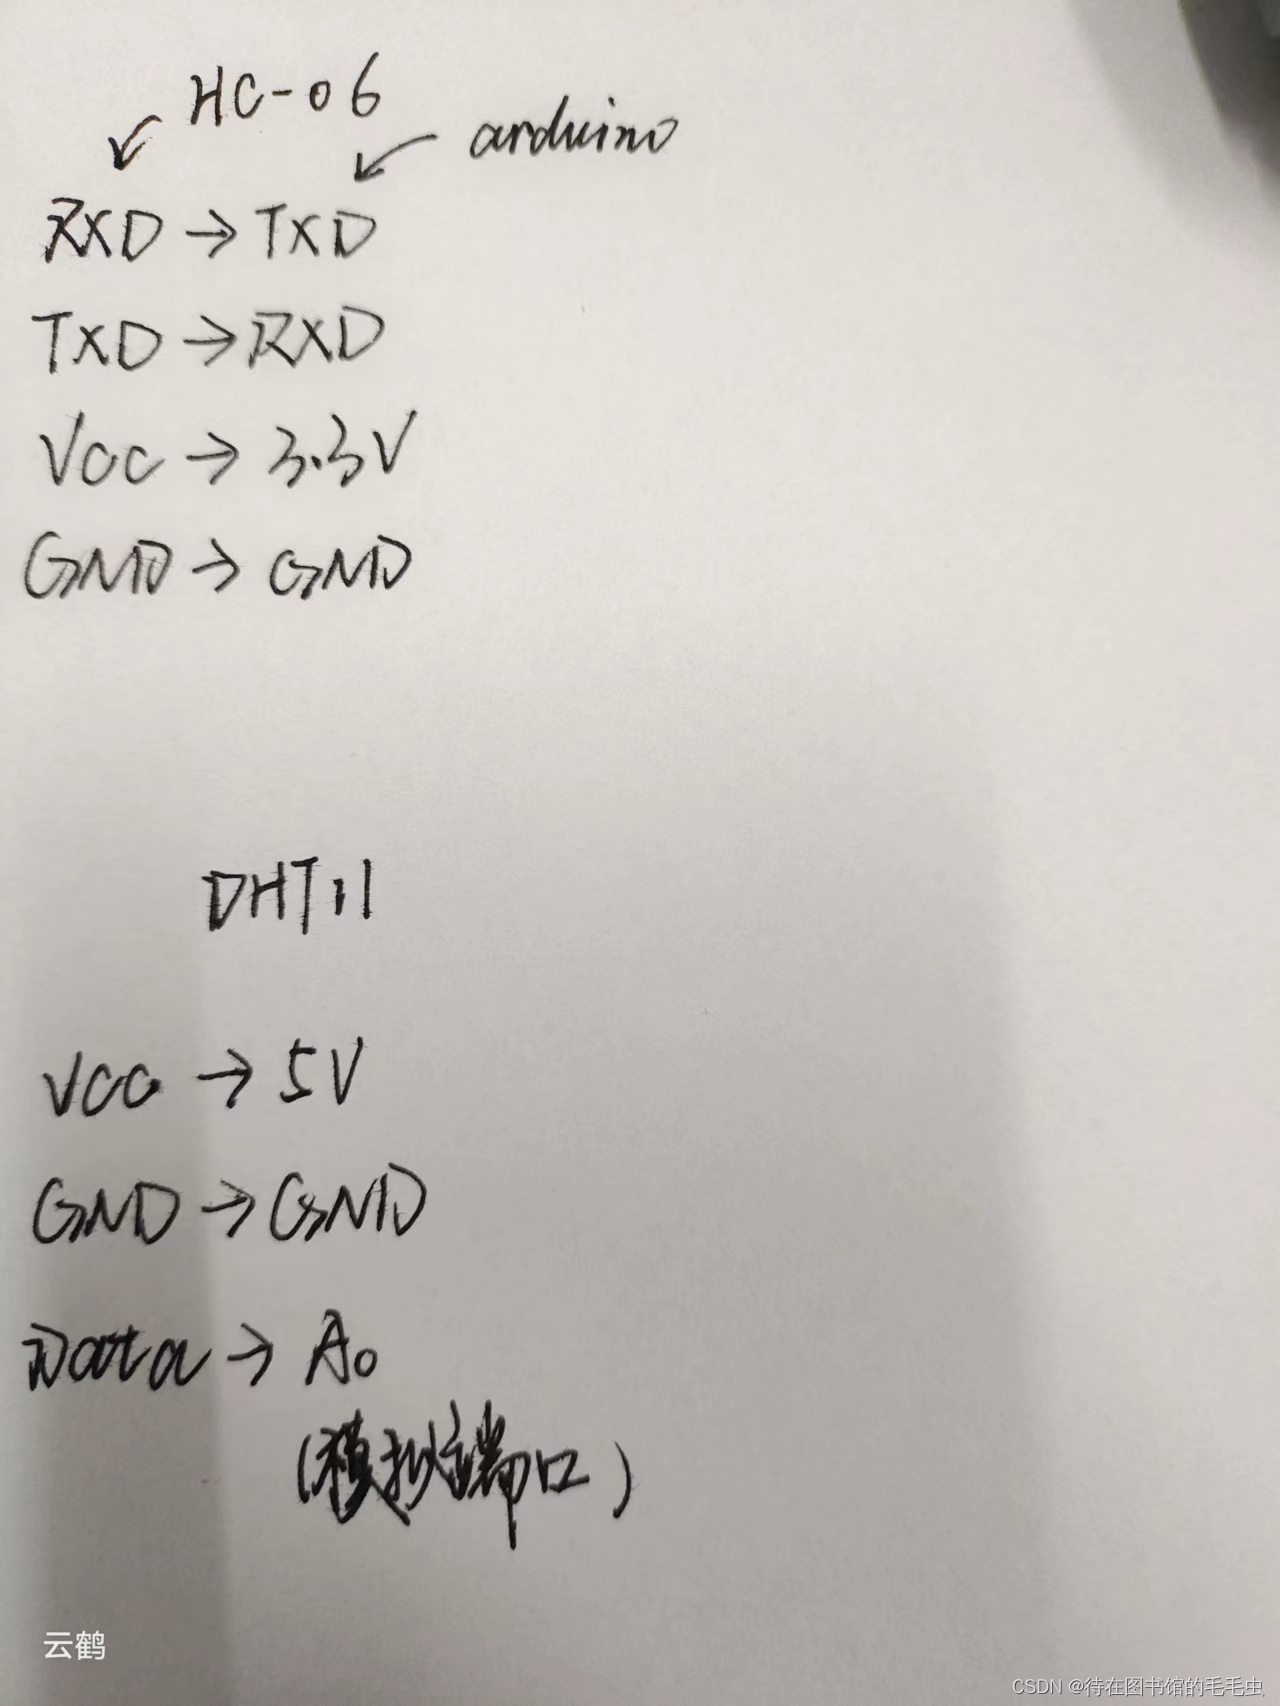 HC-06
arduino
RXD → TXD
TXD → RXD
VCC → 3.3V
GND → GND
DHT11
VCC → 5V
GND → GND
Data → A0
(模拟端口)
云鹤
CSDN @待在图书馆的毛毛虫